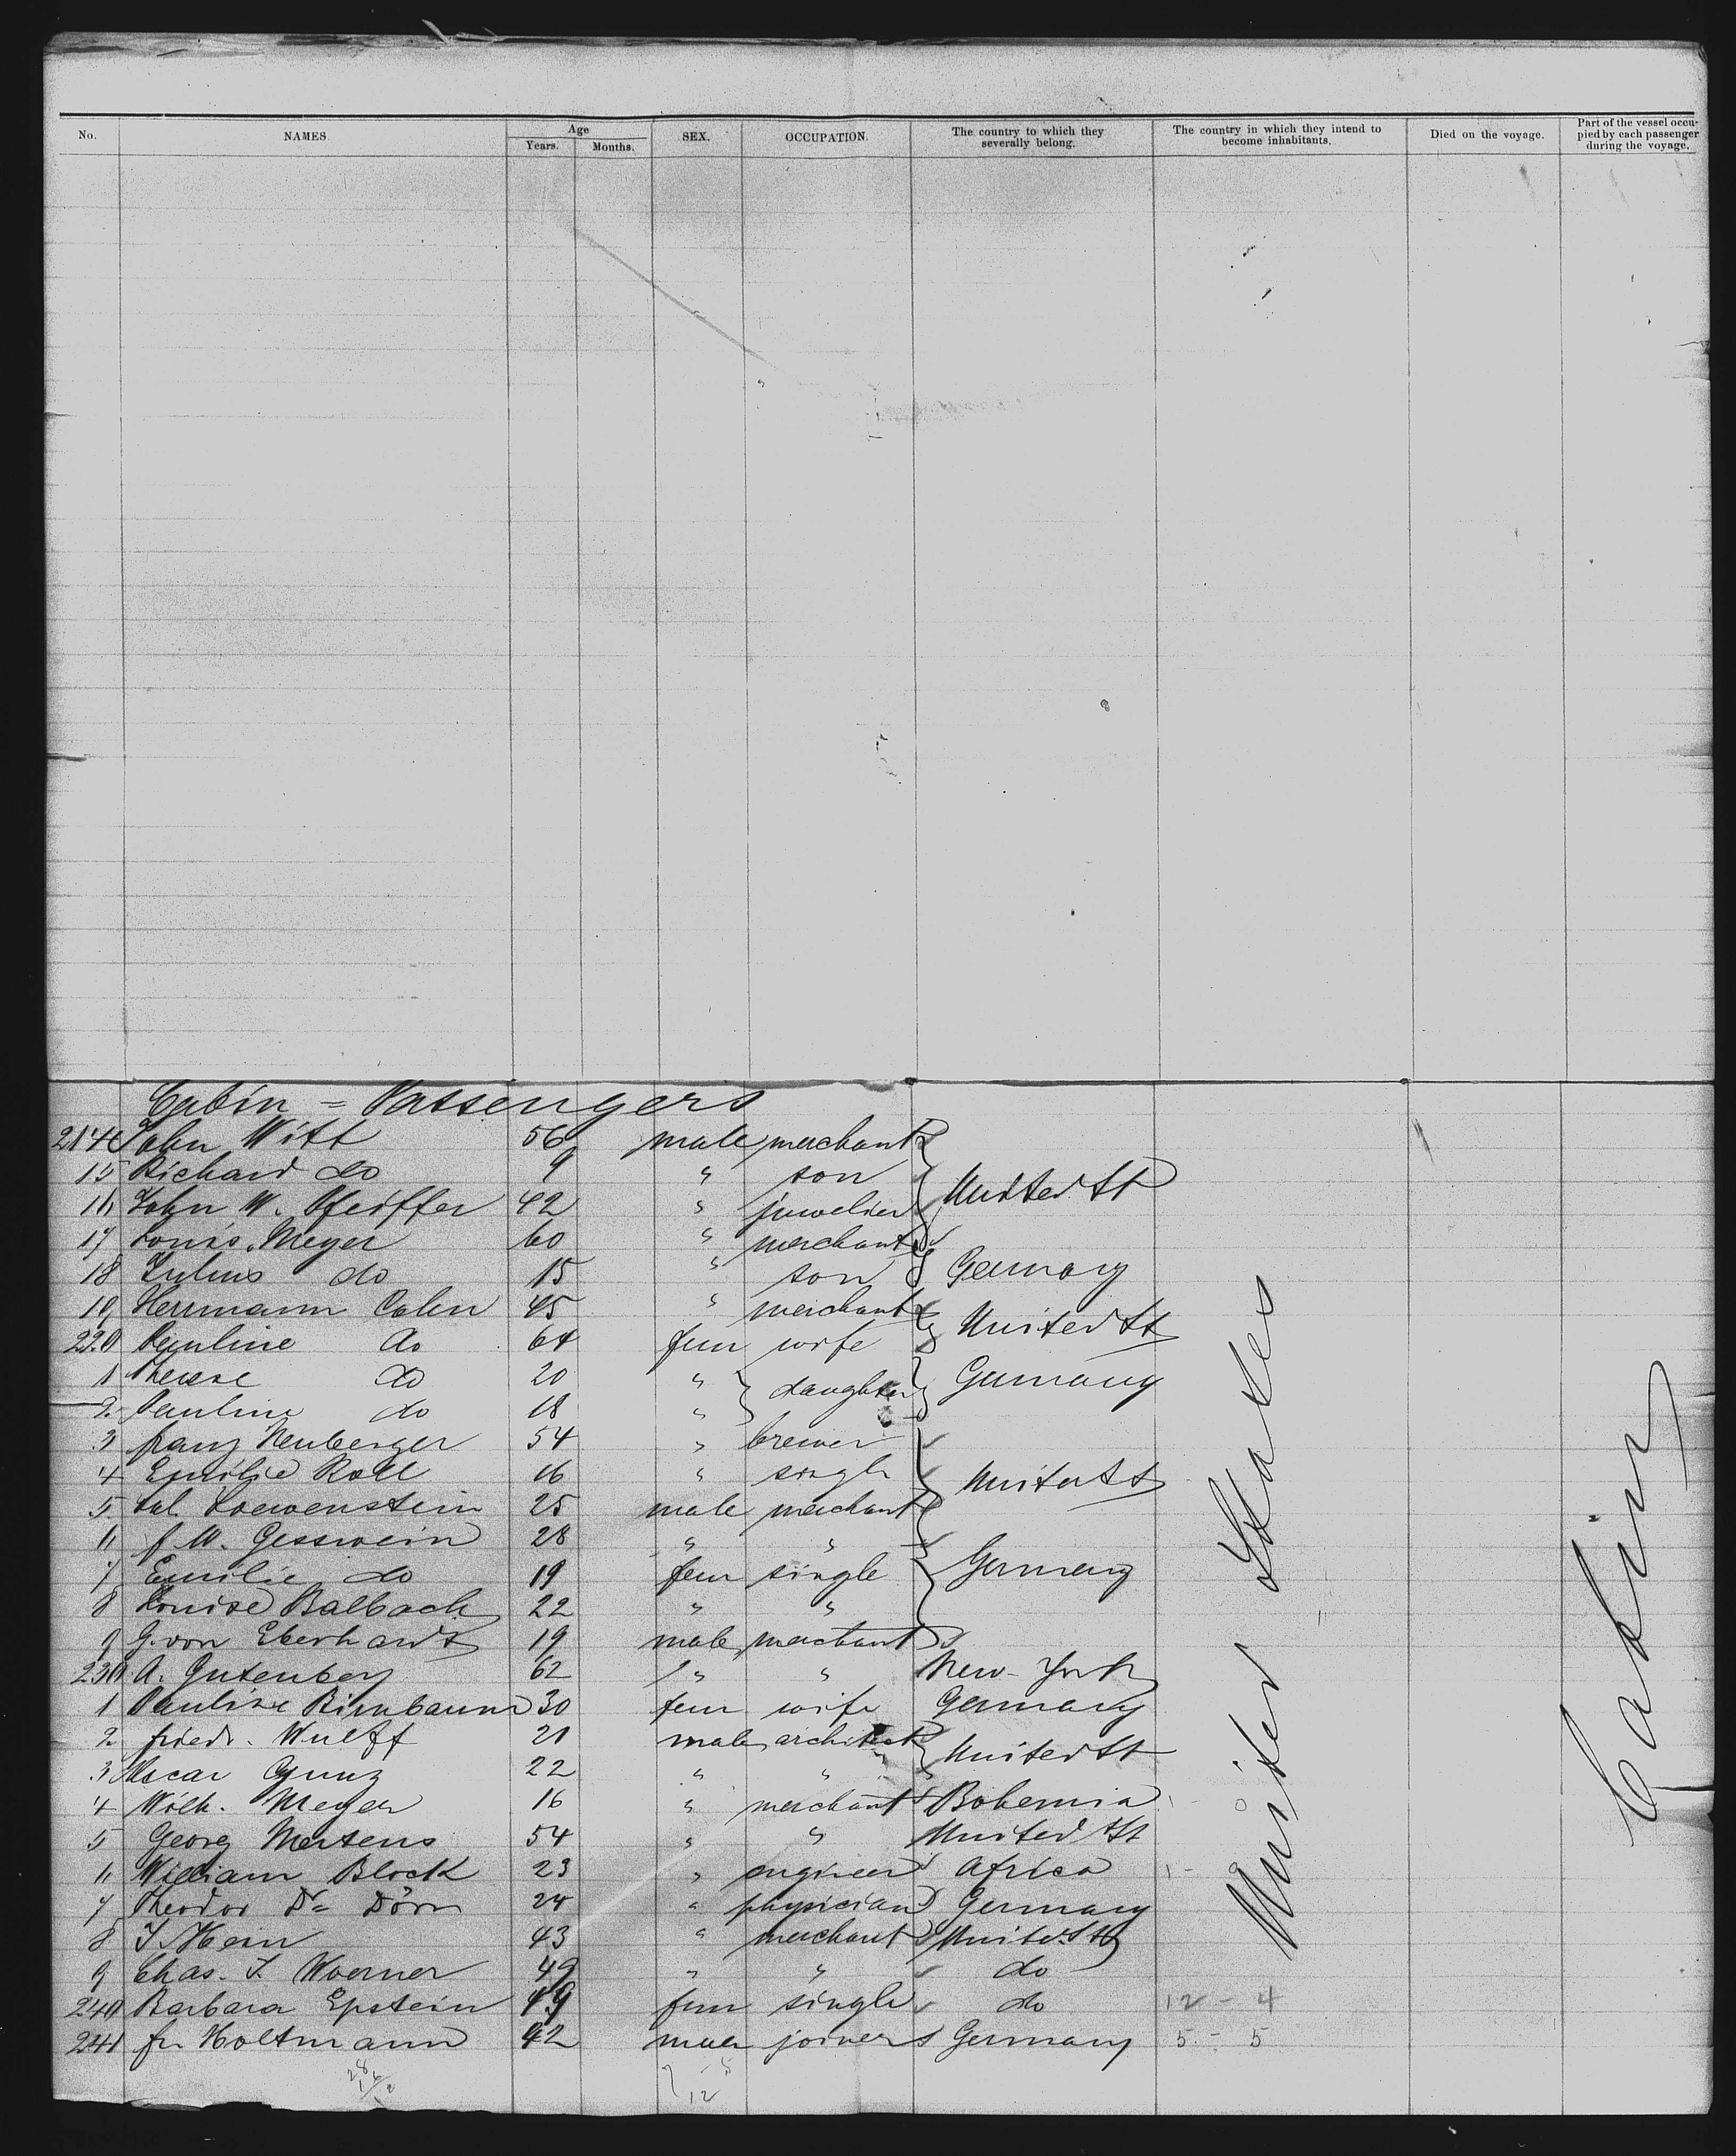 No. NAMES. Age Years. Months. SEX. OCCUPATION. The country to which they severally belong. The country in which they intend to become inhabitants. Died on the voyage. Part of the vessel occupied by each passenger during the voyage.
Cabin = Passengers
214 John Witt 56 male merchant
15 Richard do 9 " son United St
16 John W. Pfeiffer 42 " juwelier
17 Louis Meyer 60 " merchant
18 Julius do 15 " son Germany
19 Herrmann Cohn 45 " merchant United St
220 Pauline do 64 fem wife
1 Therese do 20 " daughter Germany
2 Pauline do 18 "
3 franz Neuberger 54 " brewer
4 Emilie Roll 16 " single United St
5 Sal. Loewenstein 25 male merchant
6 f. W. Gesswein 28 " "
7 Emilie do 19 fem single Germany
8 Louise Balbach 22 " "
9 G. von Eberhardt 19 male merchant
230 A. Gutenberg 62 " " New-York
1 Pauline Birnbaum 30 fem wife Germany
2 friedr. Wulff 21 male architect United St
3 Oscar Gunz 22 " "
4 Wilh. Meyer 16 " merchant Bohemia
5 Georg Mertens 54 " " United St
6 William Block 23 " engineer Africa
7 Theodor Dr Dörr 24 " physician Germany
8 J. Hein 43 " merchant United St
9 Chas. F. Woerner 49 " " do
240 Barbara Epstein 49 fem single do 12 - 4
241 fr. Holtmann 42 male joiner Germany 5 - 5
United States
Cabin
12